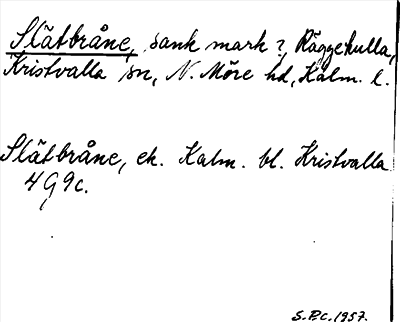 Slätbråne, sank mark?, Räggekulla,
Kristvalla sn, N. Möre hd, Kalm. l.
Slätbråne, ek. Kalm. bl. Kristvalla
4 G 9c.
S.P.C. 1957.